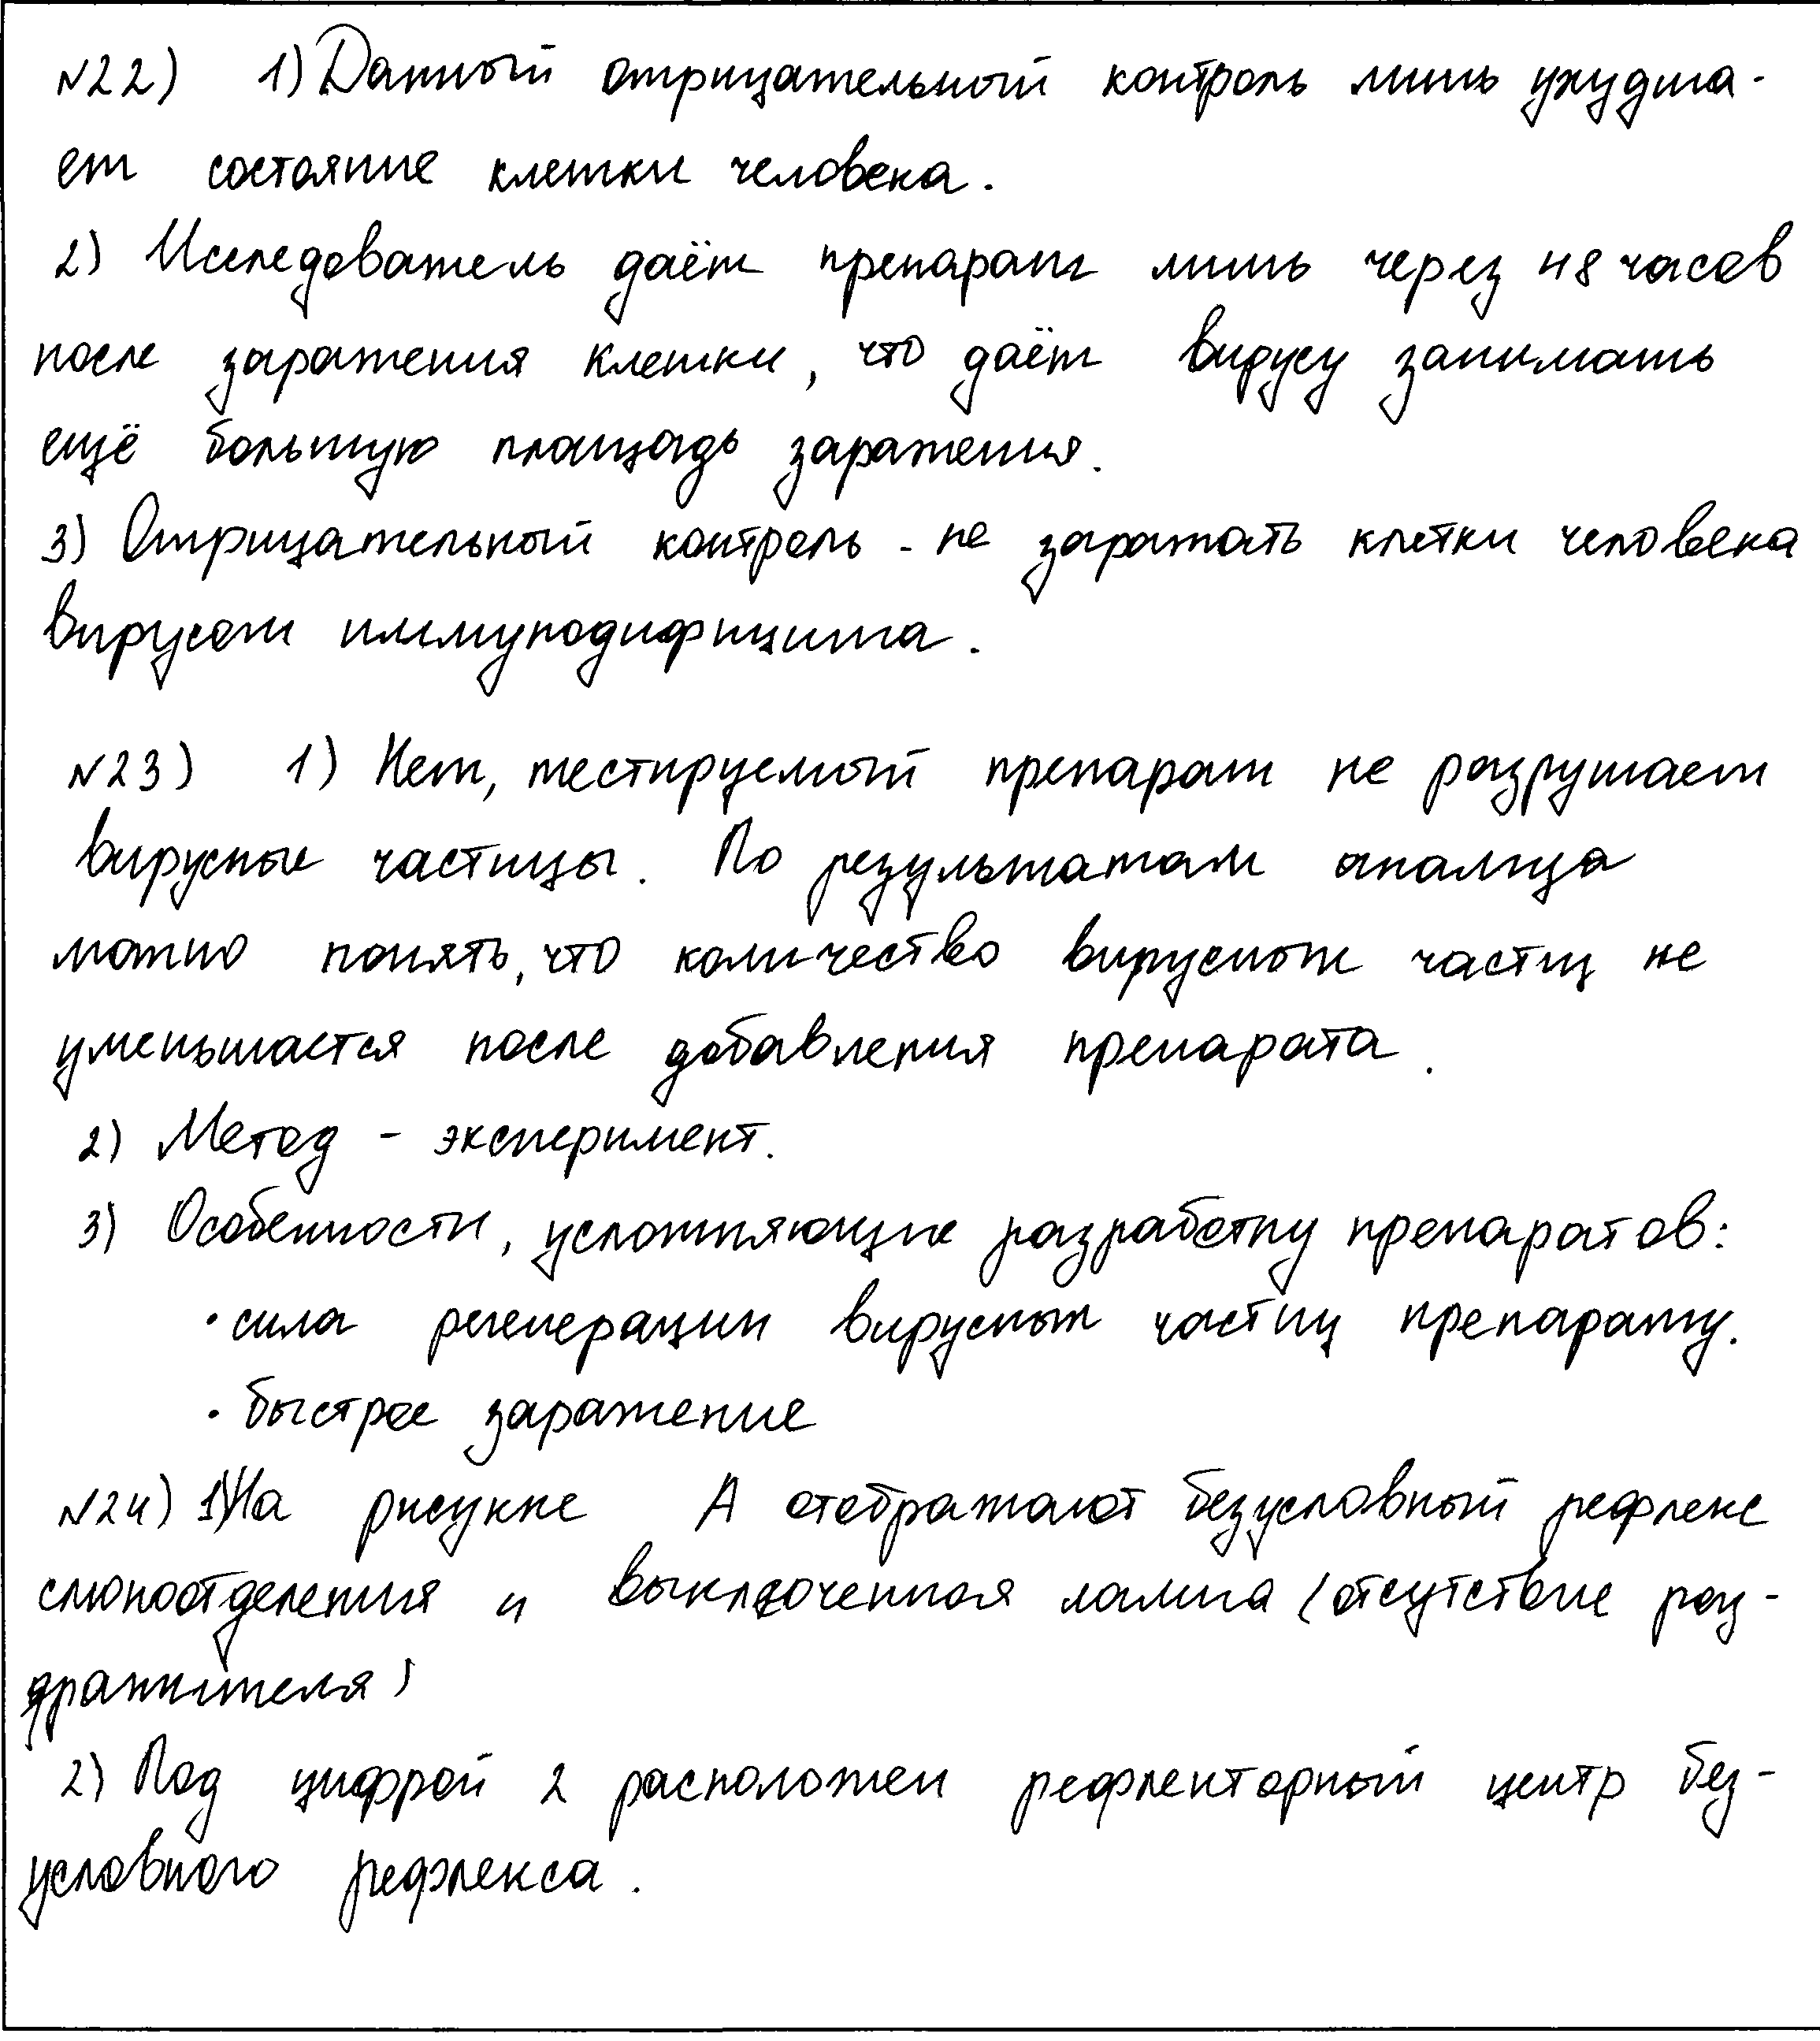 №22) 1) Данный отрицательный контроль лишь ухудша-
ет состояние клетки человека.
2) Исследователь даёт препарат лишь через 48 часов
после заражения клетки, что даёт вирусу занимать
ещё большую площадь заражения.
3) Отрицательный контроль - не заражать клетки человека
вирусом иммунодифицита.
№23) 1) Нет, тестируемый препарат не разрушает
вирусные частицы. По результатам анализа
можно понять, что количество вирусных частиц не
уменьшается после добавления препарата.
2) Метод - эксперимент.
3) Особенности, усложняющие разработку препаратов:
• сила регенерации вирусных частиц препарату.
• быстрое заражение
№24) 1) На рисунке А отображают безусловный рефлекс
слюноотделения и выключенная лампа (отсутствие раз-
дражителя)
2) Под цифрой 2 расположен рефлекторный центр без-
условного рефлекса.